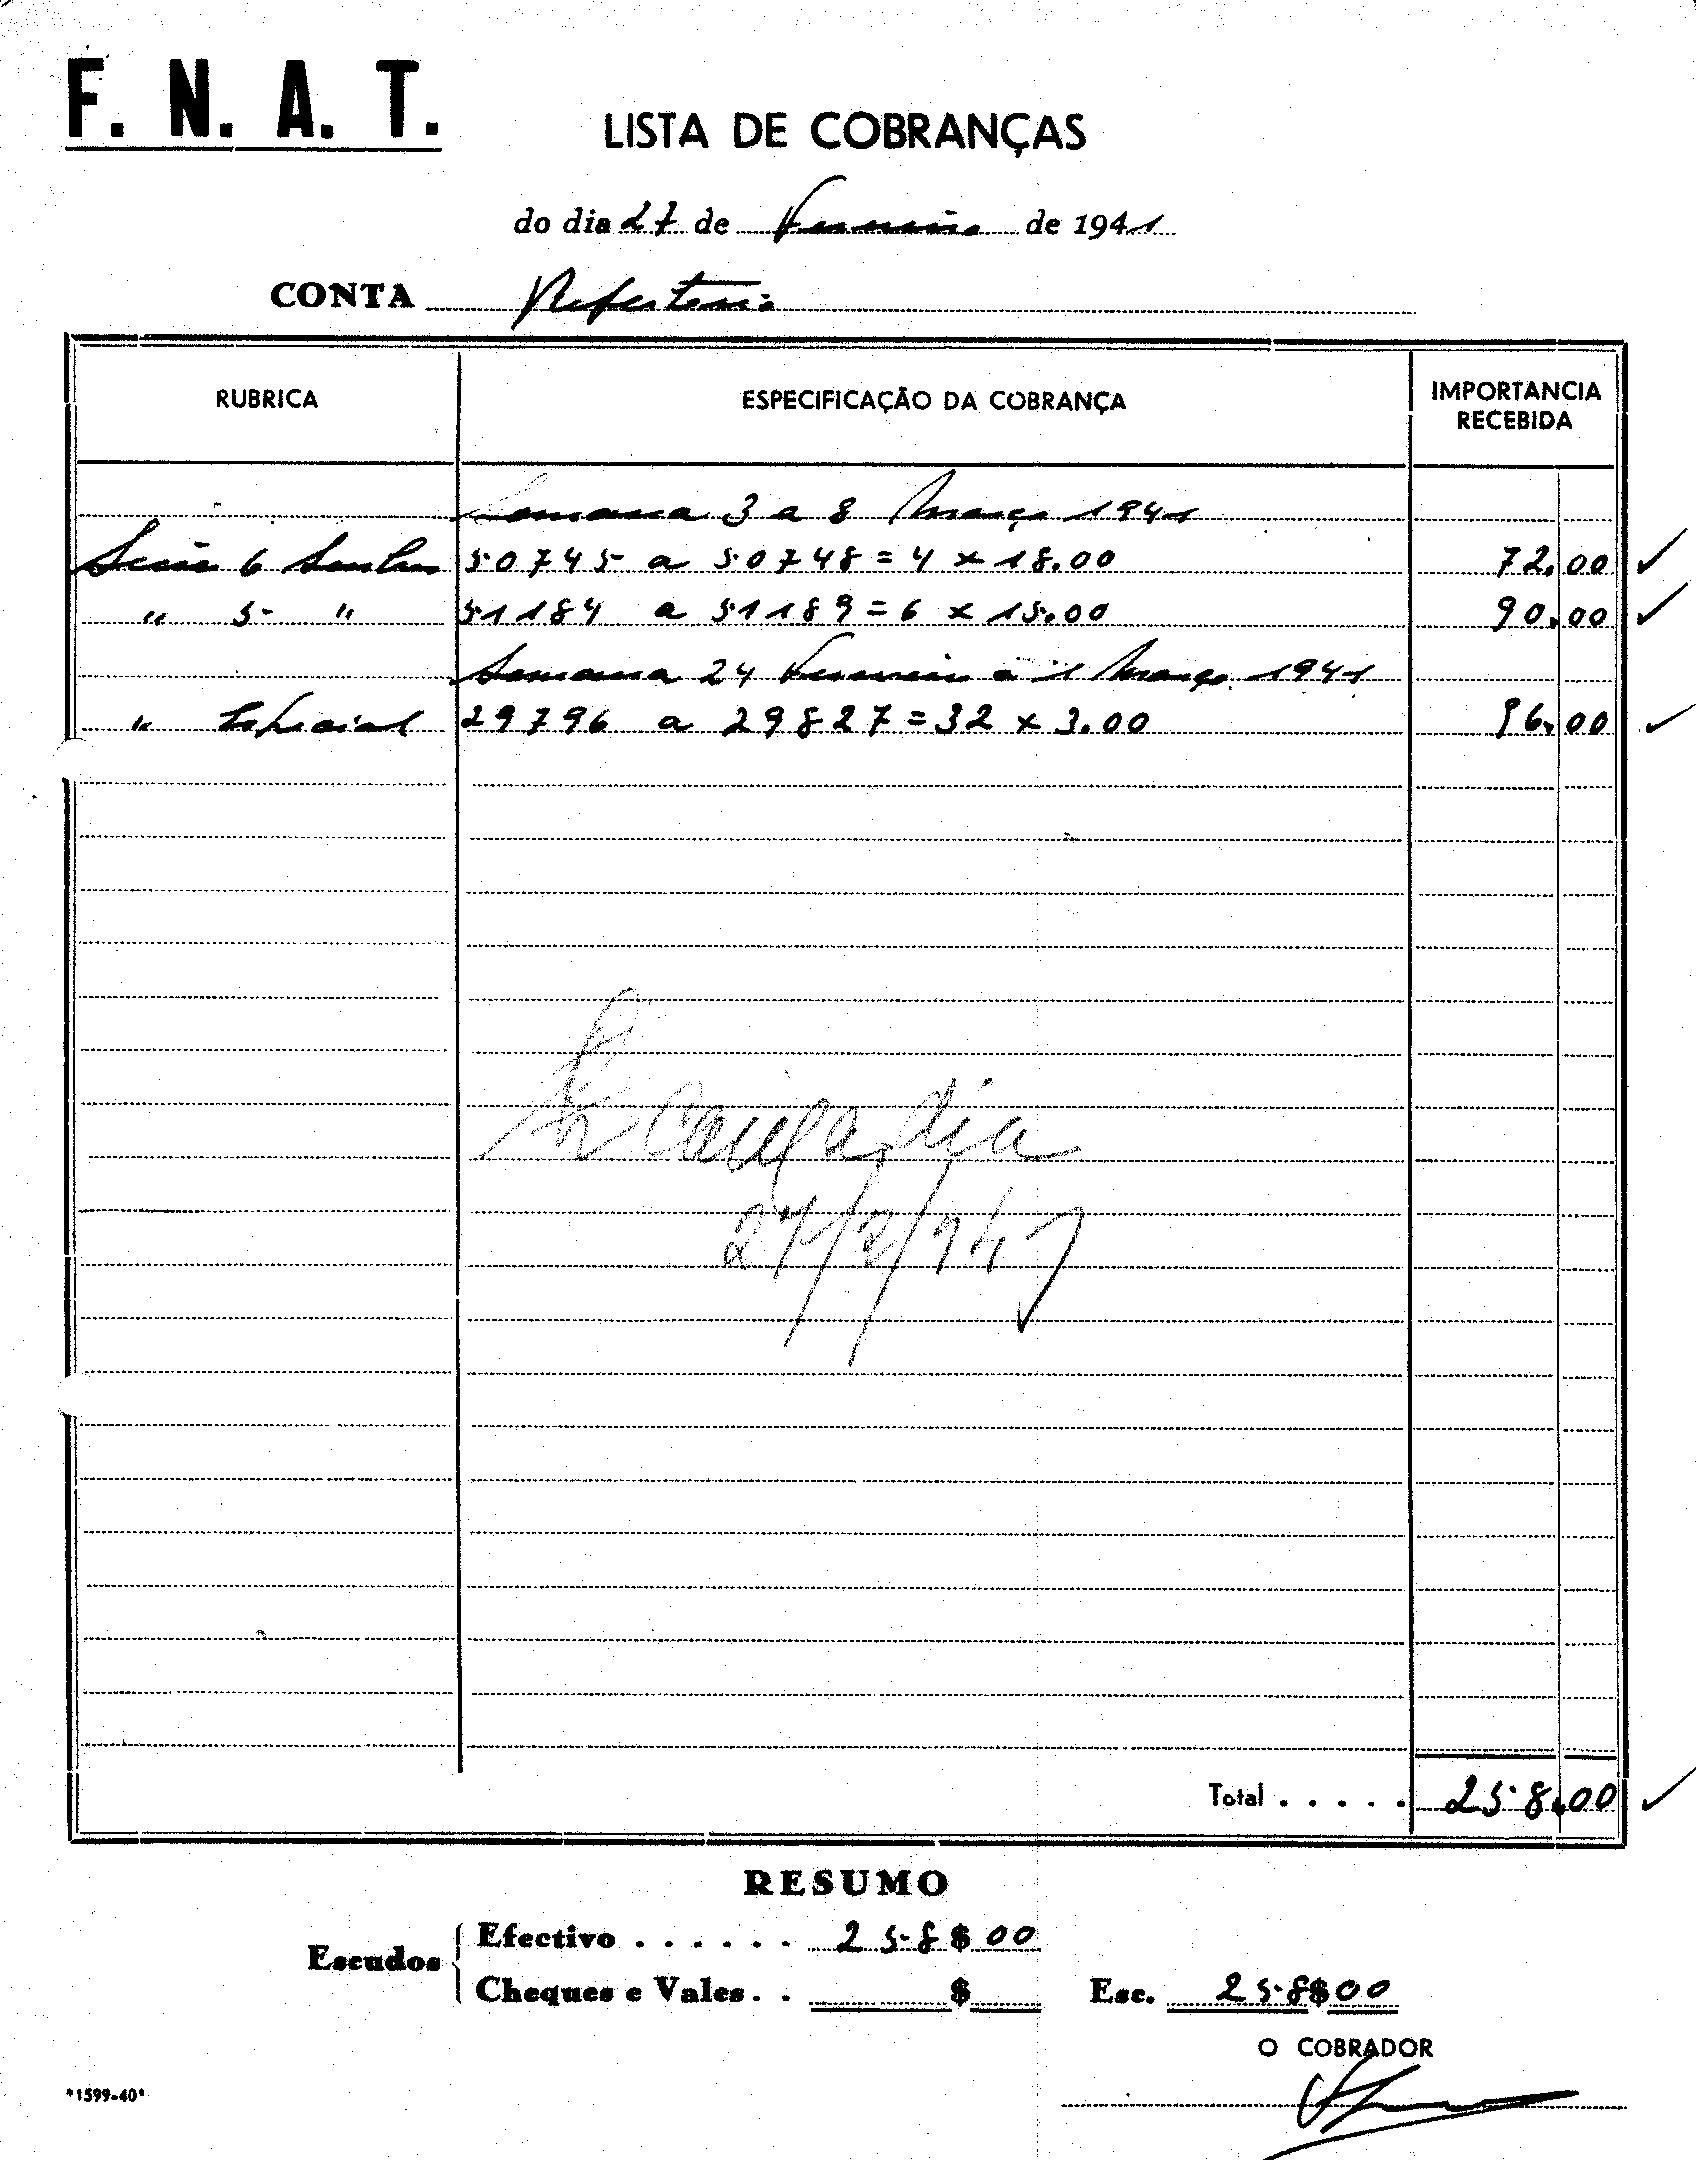 F. N. A. T.
LISTA DE COBRANÇAS
do dia 27 de Fevereiro de 1941
CONTA Refeitorio
RUBRICA ESPECIFICAÇÃO DA COBRANÇA IMPORTANCIA RECEBIDA
Semana 3 a 8 Março 1941
Série 6 Senhas 50745 a 50748 = 4 x 18.00 72.00
" 5 " 51184 a 51189 = 6 x 15.00 90.00
Semana 24 Fevereiro a 1 Março 1941
" Especial 29796 a 29827 = 32 x 3.00 96.00
dia
Total . . . . . 258.00
RESUMO
Escudos
Efectivo . . . . . . 258$00
Cheques e Vales . . $ Esc. 258$00
O COBRADOR
*1599-40*